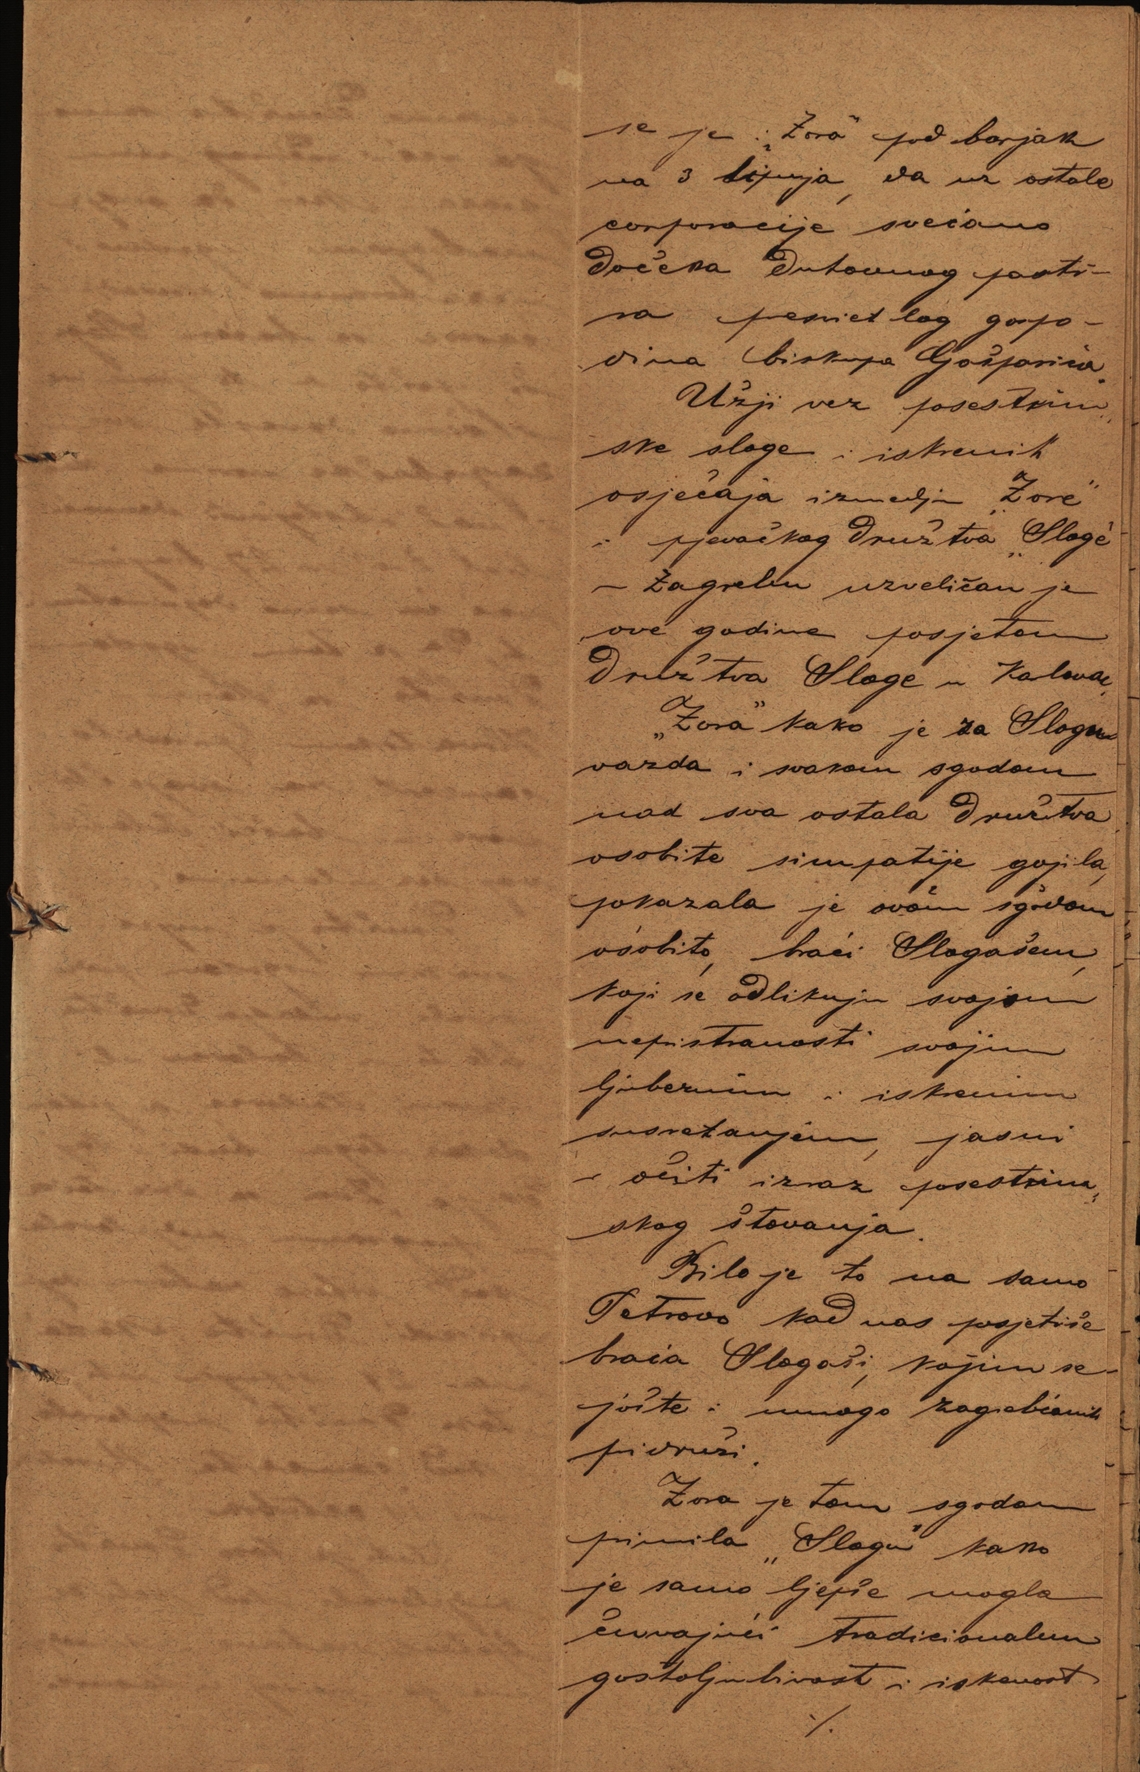 se je i „Zora" pod barjak
na 3 lipnja, da uz ostale
corporacije svečano
dočeka duhovnog pasti-
ra presvietlog gospo-
dina biskupa Gašparića.
Užji vez posestrim-
ske sloge i iskrenih
osječaja izmedju „Zore"
i pjevačkog družtva „Sloge"
u Zagrebu uzveličan je
ove godine posjetom
družtva Sloge u Karlovac.
„Zora" kako je za Slogu
vazda i svakom sgodom
nad sva ostala družtva
osobite simpatije gojila,
pokazala je ovom sgodom
osobito, braći Slogašem,
koji se odlikuju svojom
nepristranosti svojim
ljubeznim i iskrenim
susretanjem, jasni
i očiti izraz posestrim-
skog štovanja.
Bilo je to na samo
Petrovo kad nas posjetiše
braća Slogaši, kojim se
jošte i mnogo zagrebčanih
pridruži.
Zora je tom sgodom
primila „Slogu" kako
je samo ljepše mogla
čuvajući tradicionalnu
gostoljubivost i iskrenost
./.